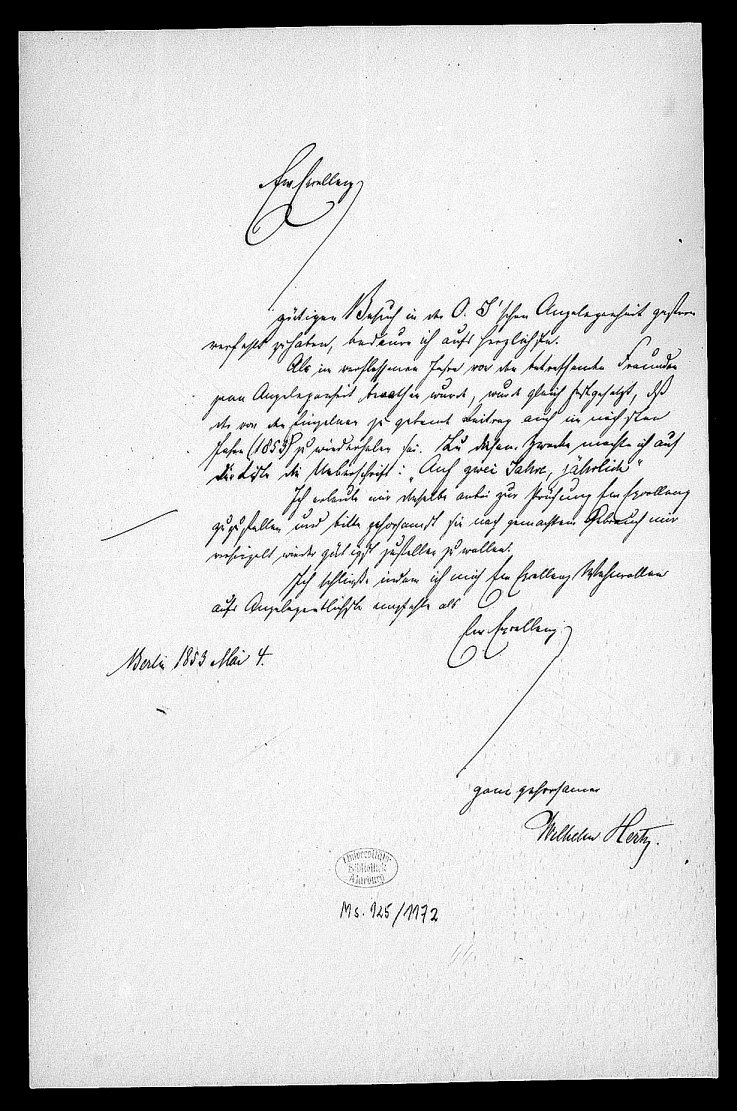 Ew Excellenz
gütigen Besuch in der O. J'schen Angelegenheit gestern
verfehlt zu haben, bedaure ich aufs herzlichste.
Als im verflossenen Jahre von den betreffenden Freunden
jene Angelegenheit berathen wurde, wurde gleich festgesetzt, daß
der von den Einzelnen zu gebende Beitrag auch im nächsten
Jahre (1853) zu wiederholen sei. Zu diesem Zwecke machte ich auf
der Liste die Ueberschrift: „Auf zwei Jahre, jährlich"
Ich erlaube mir dieselbe anbei zur Prüfung Ew Excellenz
zuzustellen und bitte gehorsamst sie nach gemachtem Gebrauch mir
versiegelt wieder gütigst zustellen zu wollen.
Ich schließe indem ich mich Ew Excellenz Wohlwollen
aufs Angelegentlichste empfehle als
Ew Excellenz
Berlin 1853 Mai 4.
ganz gehorsamer
Wilhelm Hertz.
Universitäts
Bibliothek
Marburg
Ms. 125/1172